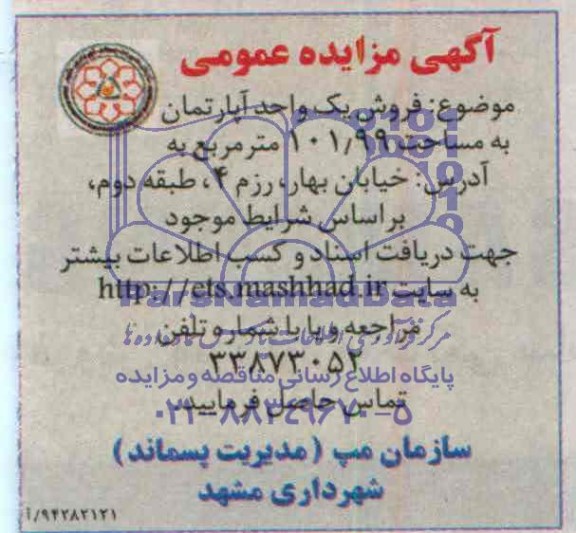 آگهی مزایده عمومی
موضوع: فروش یک واحد آپارتمان
به مساحت ۱۰۱/۹۹ مترمربع به
آدرس: خیابان بهار، رزم ۴، طبقه دوم،
براساس شرایط موجود
جهت دریافت اسناد و کسب اطلاعات بیشتر
به سایت http://ets.mashhad.ir
ParsNamadData
مراجعه و یا با شماره تلفن
۳۳۸۷۳۰۵۲
پایگاه اطلاع رسانی مناقصه و مزایده
تماس حاصل فرمایید.
۰۲۱-۸۸۳۴۹۶۷۰-۵
سازمان مپ (مدیریت پسماند)
شهرداری مشهد
۹۴۲۸۲۱۲۱/آ